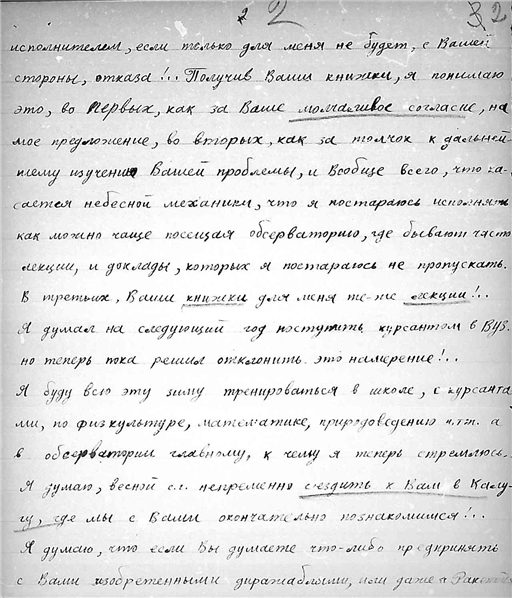 2 2 32
исполнителем, если только для меня не будет, с Вашей
стороны, отказа!.. Получив Ваши книжки, я понимаю
это, во первых, как за Ваше молчаливое согласие, на
мое предложение, во вторых, как за толчок к дальней-
шему изучению Вашей проблемы, и вообще всего, что ка-
сается небесной механики, что я постараюсь исполнять
как можно чаще посещая обсерваторию, где бывают часто
лекции, и доклады, которых я постараюсь не пропускать.
В третьих, Ваши книжки для меня те-же лекции!..
Я думал на следующий год поступить курсантом в ВУЗ.
но теперь пока решил отклонить это намерение!..
Я буду всю эту зиму тренироваться в школе, с курсанта-
ми, по физкультуре, математике, природоведению и.т.п. а
в обсерватории главному, к чему я теперь стремлюсь.
Я думаю, весной с.г. непременно съездить к Вам в Калу-
гу, где мы с Вами окончательно познакомимся!..
Я думаю, что если Вы думаете что-либо предпринять
с Вами изобретенными дирижаблями, или даже с Ракетой